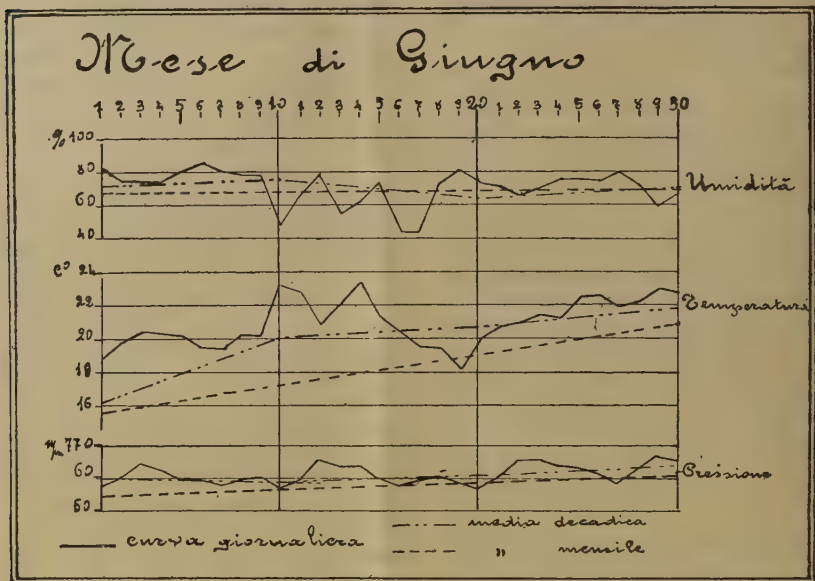 Mese di Giugno
1 2 3 4 5 6 7 8 9 10 1 2 3 4 5 6 7 8 9 20 1 2 3 4 5 6 7 8 9 30
% 100
80
60
40
Umidità
C° 24
22
20
18
16
Temperatura
m/m 770
60
50
Pressione
curva giornaliera
media decadica
" mensile